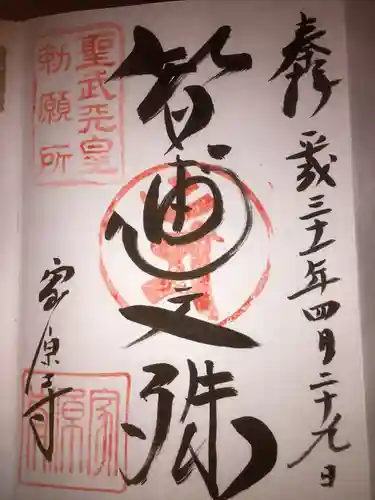 奉拝
平成三十一年四月二十九日
聖武天皇
勅願所
智恵文殊
家原寺
家原寺